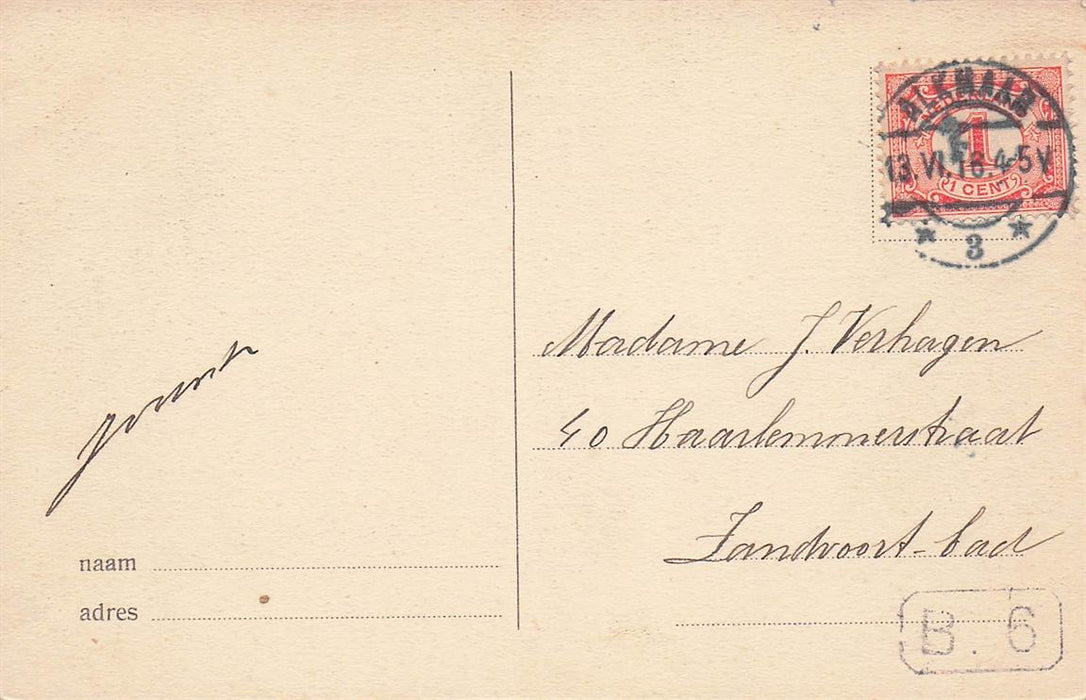 ALKMAAR
NEDERLAND
1
13.VI.16.4-5V
1 CENT
3
Madame J. Verhagen
40 Haarlemmerstraat
Zandvoort-bad
naam
adres
B. 6